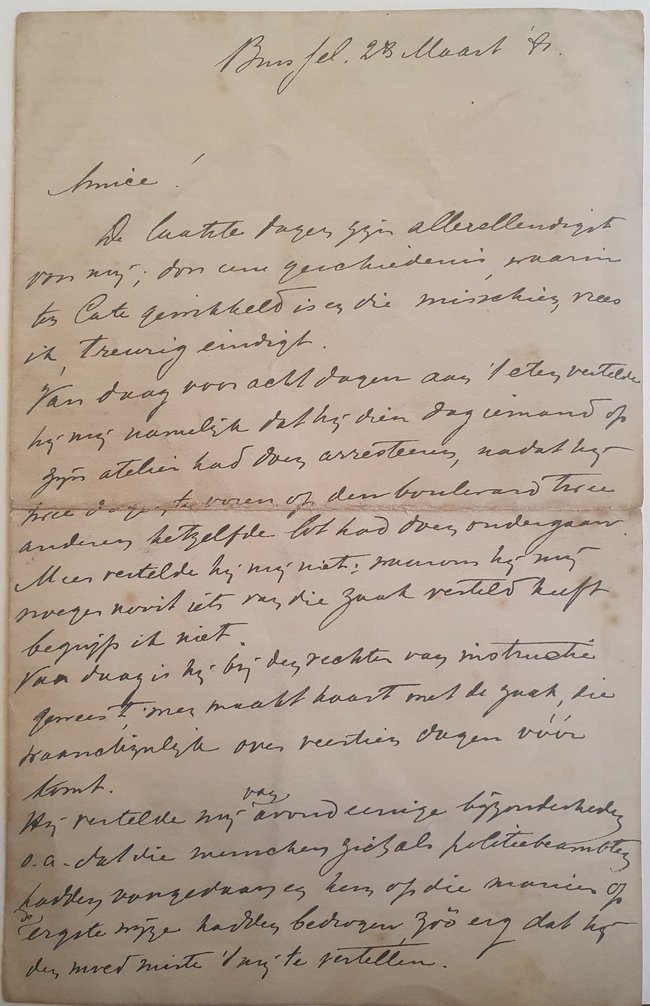 Brussel. 28 Maart '81.
Amice!
De laatste dagen zijn allerellendigst
voor mij; door eene geschiedenis, waarin
ten Cate gewikkeld is en die misschien, vrees
ik, treurig eindigt.
Van daag voor acht dagen aan 't eten vertelde
hij mij namelijk dat hij dien dag iemand op
zijn atelier had doen arresteeren, nadat hij
twee dagen te voren op den boulevard twee
anderen hetzelfde lot had doen ondergaan.
Meer vertelde hij mij niet; waarom hij mij
vroeger nooit iets van die zaak verteld heeft
begrijp ik niet.
Van daag is hij bij den rechter van instructie
geweest, men maakt haast met de zaak, die
waarschijnlijk over veertien dagen vóór
komt.
Hij vertelde mij van avond eenige bijzonderheden
o.a. dat die menschen zich als politiebeambten
hadden voorgedaan en hem op die manier op
de ergste wijze hadden bedrogen, zóó erg dat hij
den moed miste 't mij te vertellen.